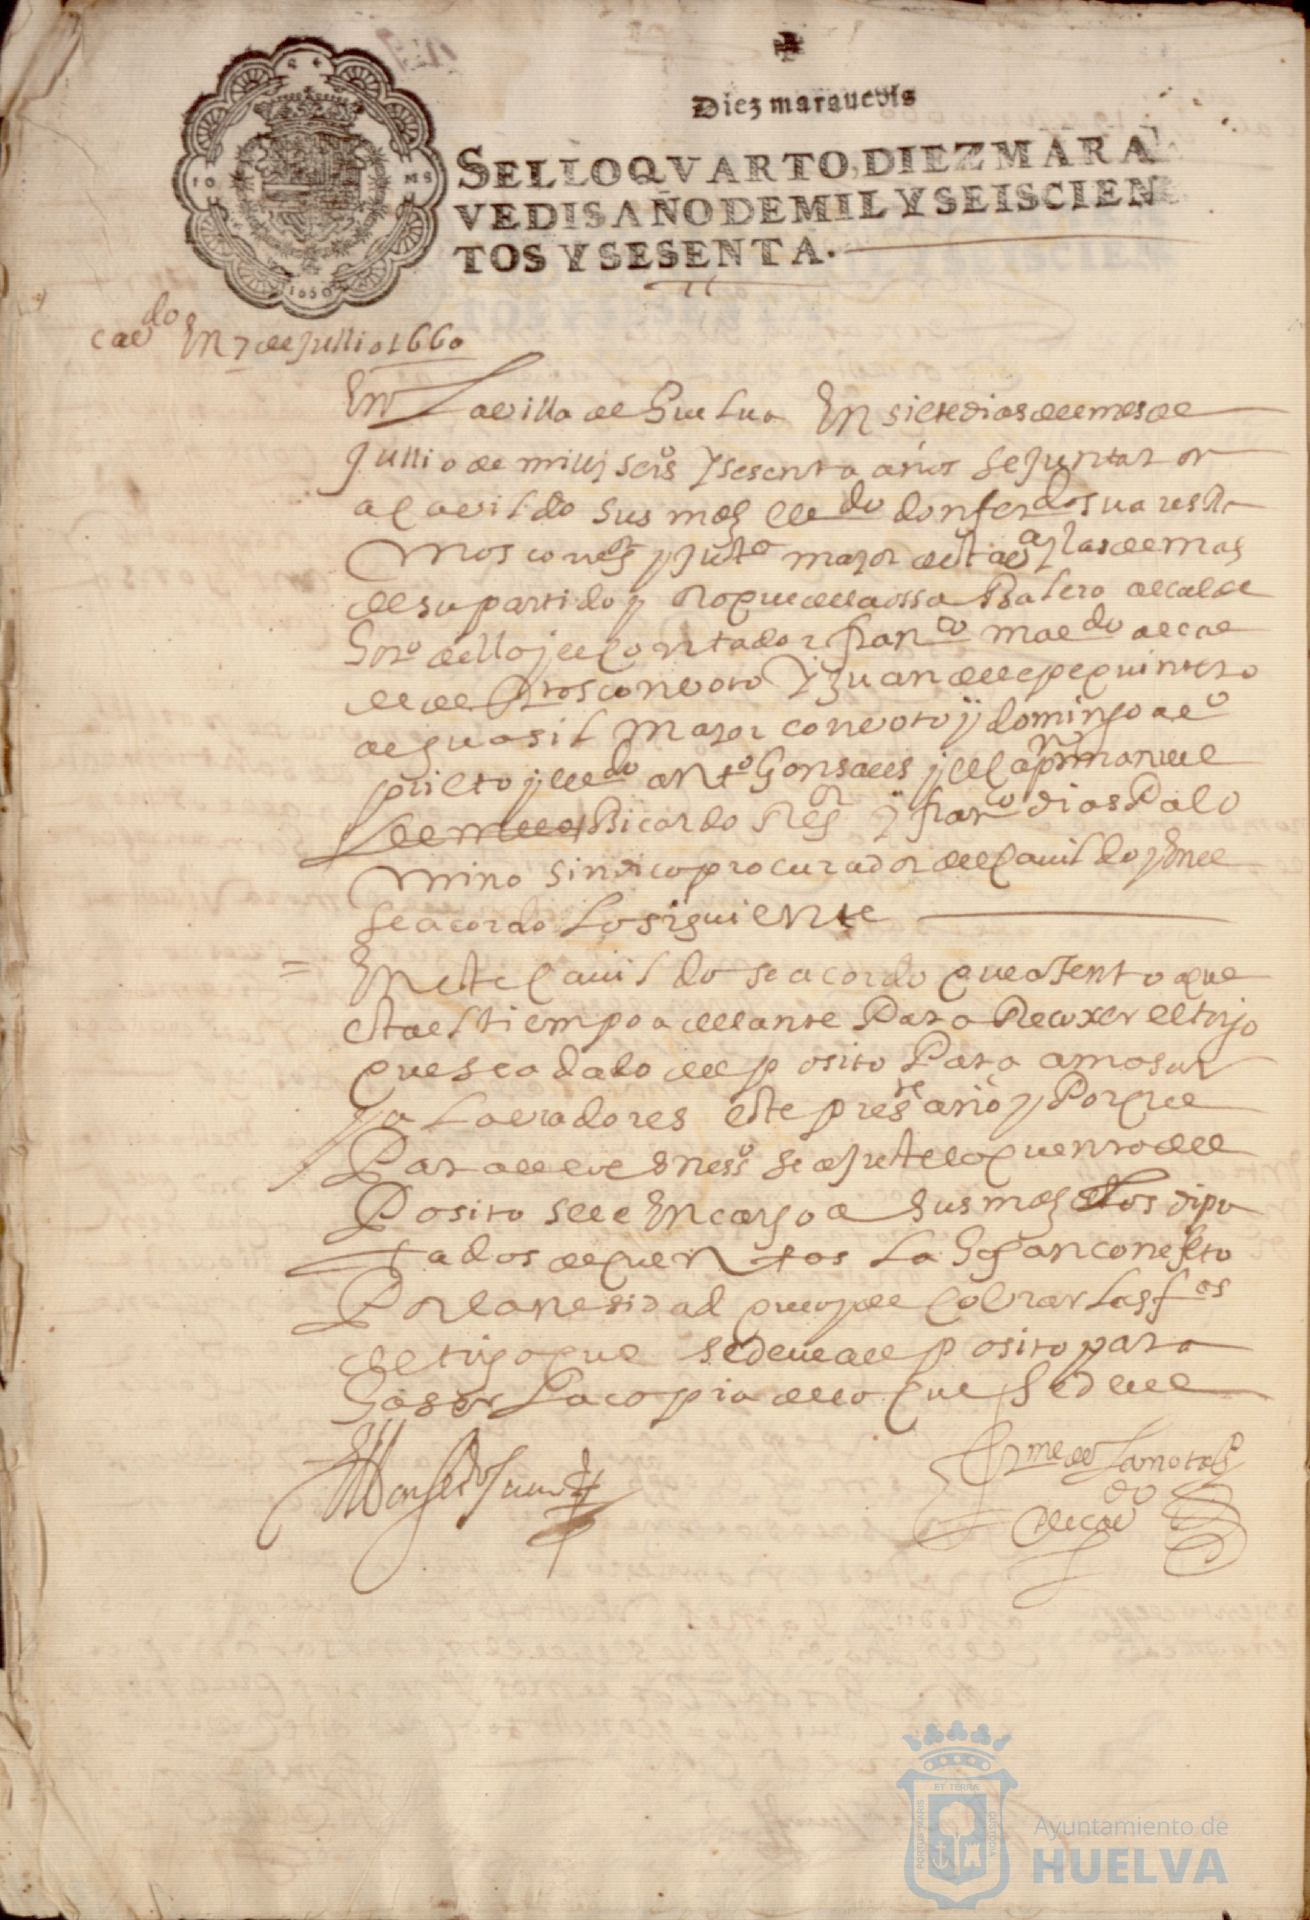 Diez marauedis
SELLO QVARTO, DIEZ MARA
VEDIS AÑO DE MIL Y SEISCIEN
TOS Y SESENTA.
cavdo En 7 de Jullio 1660
En La villa de Guelua En siete dias del mes de
Jullio de mill y seisº y sesenta años se Juntaron
a cavildo sus mds el ldo don ferdo suares de
mos corregor y Justª mayor desta vª y las demas
de su partido y Roque de la ossa Valero alcalde
hor de ella y el contador franco ma do alcal
de de con voto y Juan de lepe quintero
alguasil mayor con voto y domingo
prieto y el ldo anto Gonsales y el capn manuel
Bicardo Regor y franco dias Palo
mino sindico procurador del Cauildo y En el
se acordo Lo siguiente
= En este Cauildo se acordo que atento a que
esta el tiempo adelante Para Recoxer el trigo
que se a dado del posito Para amasar
y a Labradores este preste año y Porque
Para el se ajuste lo quento del
Posito se le Encargo a sus mds los dipu
tados de quentas La hagan con efeto
Por la nesidad que ay de Cobrar las fas
de trigo que se deue al posito para
haser La copia de lo que se deue
Don ferdo suares
de cavdo
ET TERRÆ
PORTUS MARIS
CUSTODIA
Ayuntamiento de
HUELVA